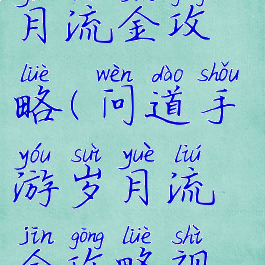 月流金攻
lüè wèn dào shǒu
略(问道手
yóu suì yuè liú
游岁月流
jīn gōng lüè shì
金攻略视